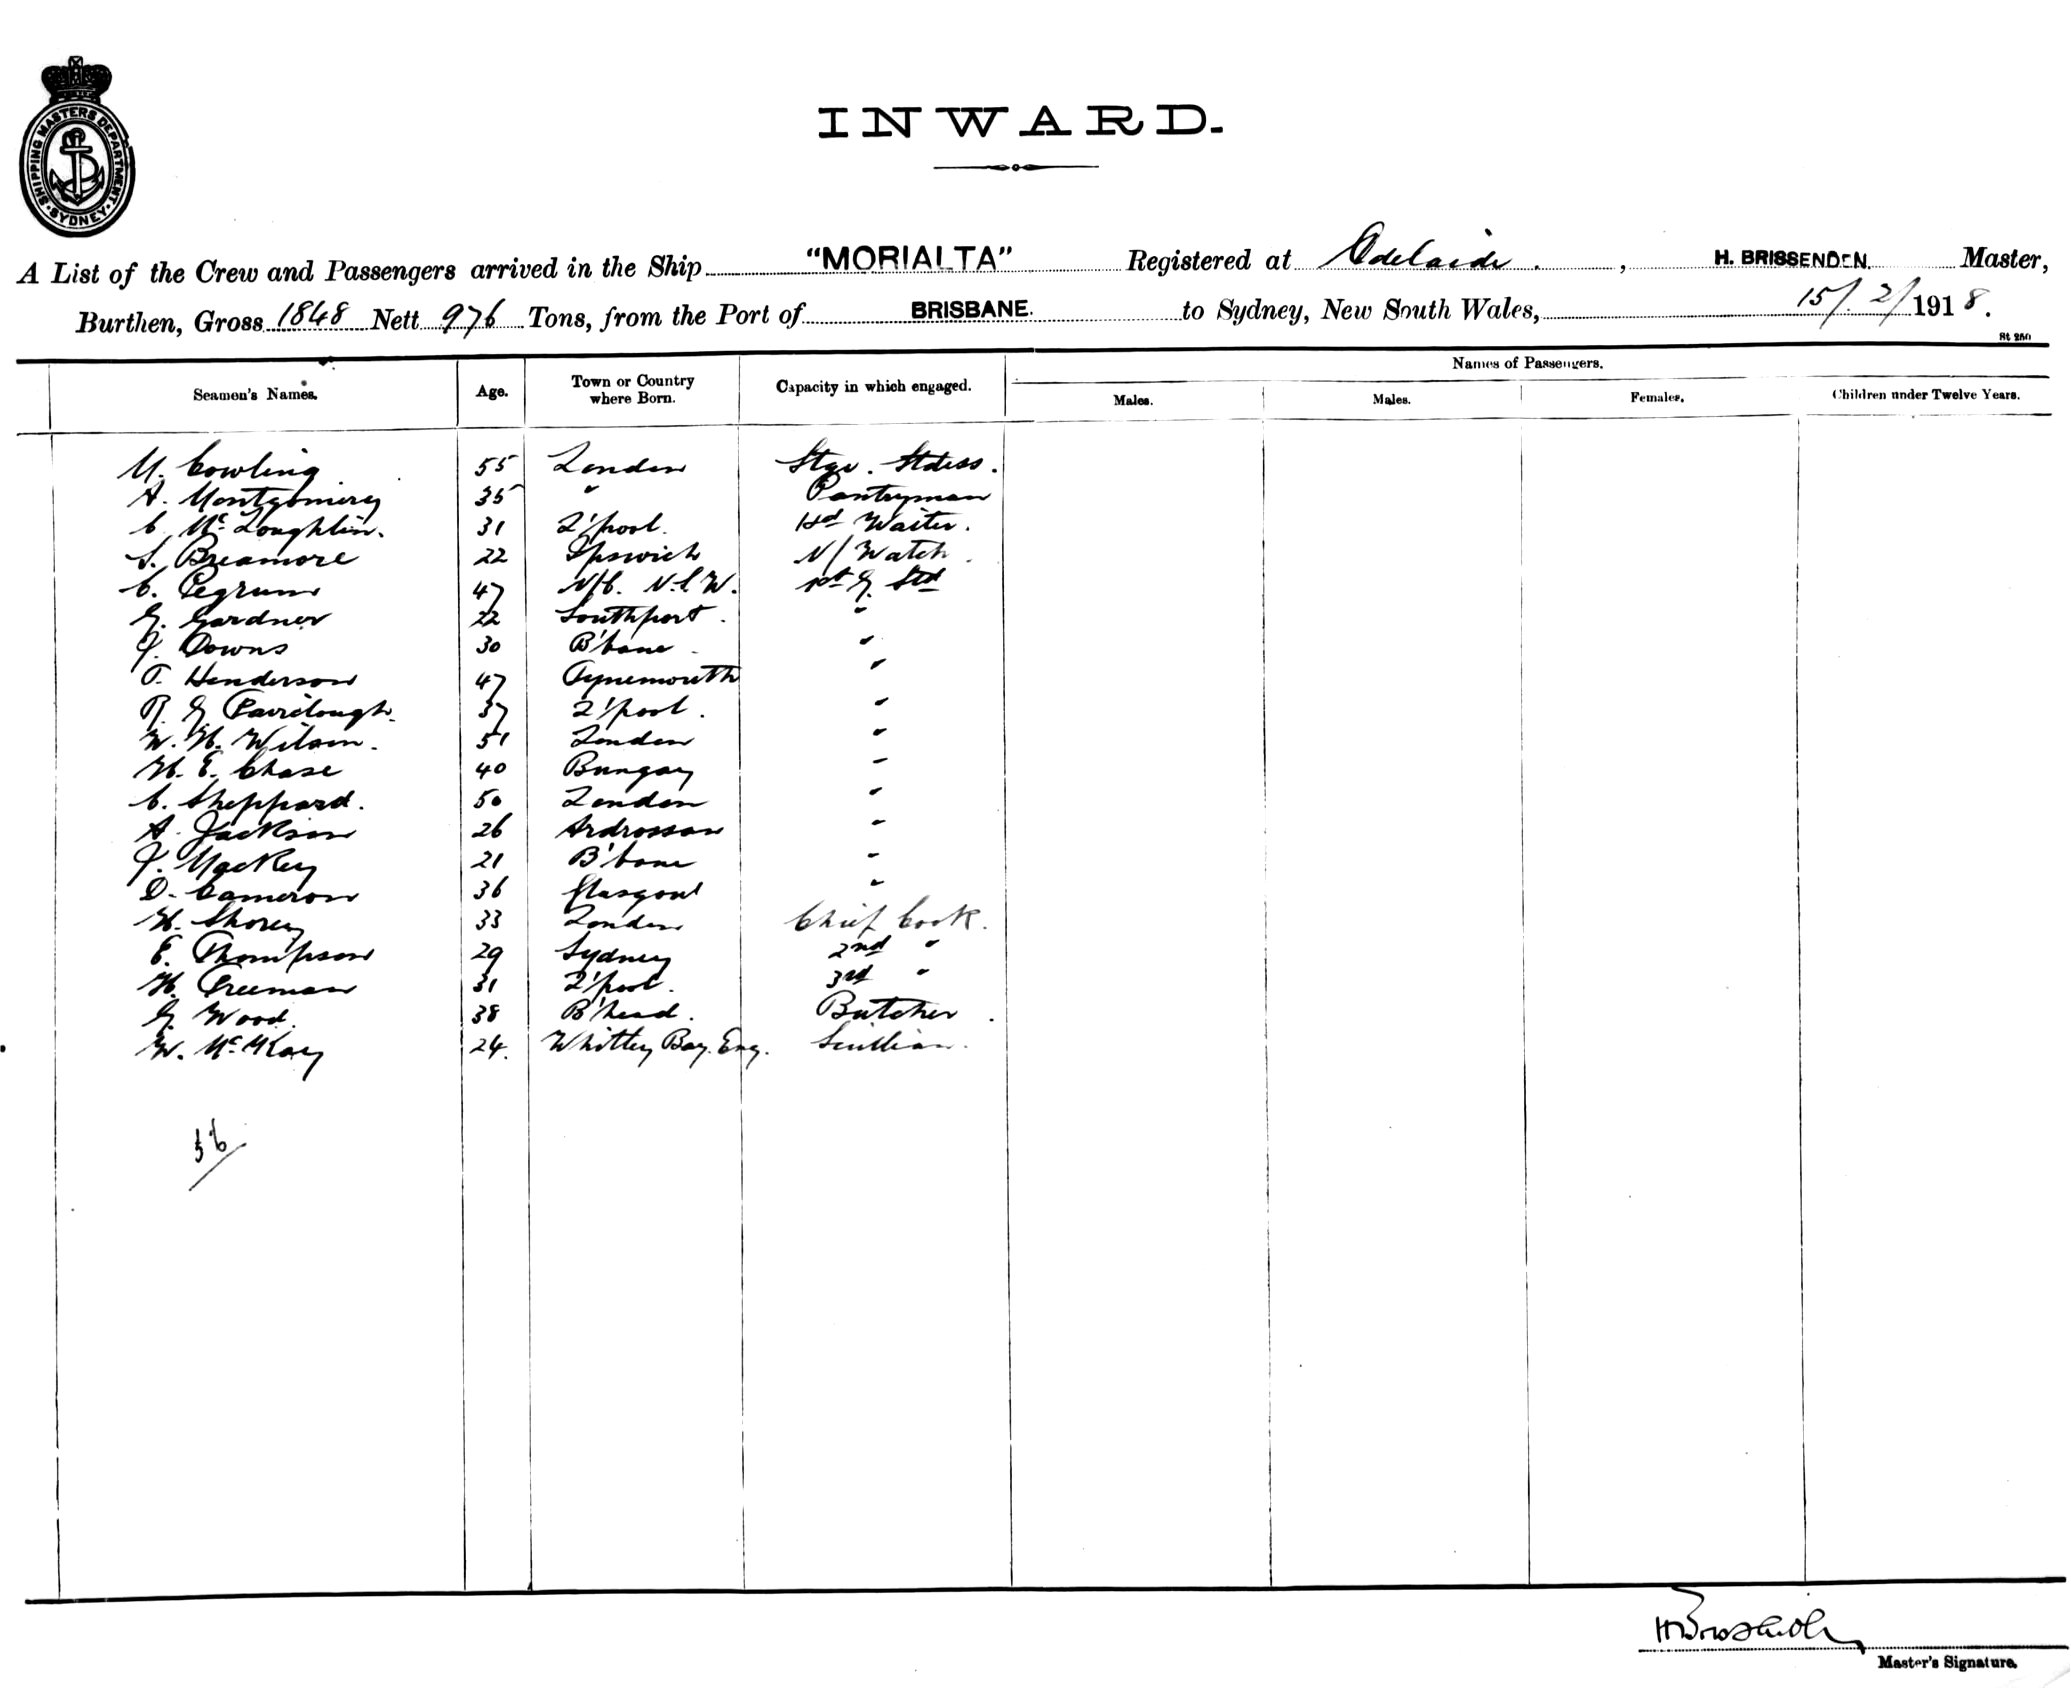 SHIPPING MASTERS DEPARTMENT · SYDNEY ·
INWARD.
A List of the Crew and Passengers arrived in the Ship "MORIALTA" Registered at Adelaide, H. BRISSENDEN. Master,
Burthen, Gross 1848 Nett 976 Tons, from the Port of BRISBANE. to Sydney, New South Wales, 15/2/1918.
St 250
Names of Passengers.
Seamen's Names. Age. Town or Country where Born. Capacity in which engaged. Males. Males. Females. Children under Twelve Years.
M. Cowling 55 London Stge. Stdess.
A. Montgomery 35 " Pantryman
C. McLoughlin. 31 L'pool. Hd Waiter.
S. Breamore 22 Ipswich N/Watch
C. Pegrum 47 N/C. N.S.W. 1st G. Std
G. Gardner 22 Southport. "
J. Downs 30 B'bane "
T. Henderson 47 Tynemouth "
R. G. Fairclough 37 L'pool. "
W. H. Wilson. 51 London "
H. E. Chase 40 Bungay "
C. Sheppard. 50 London "
A. Jackson 26 Ardrossan "
J. MacKey 21 B'bane "
D. Cameron 36 Glasgow "
H. Shorey 33 London Chief Cook.
E. Thompson 29 Sydney 2nd "
H. Freeman 31 L'pool. 3rd "
G. Wood. 38 B'head. Butcher.
W. McKay 24. Whitley Bay. Eng. Scullion.
56
Master's Signature.